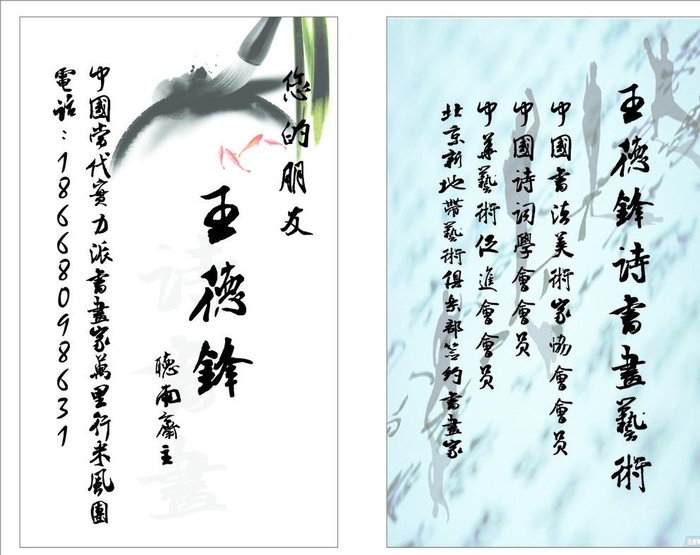 您的朋友
王德鋒
聽南齋主
詩書畫
中國當代實力派書畫家萬里行采風團
電話：18668098631
王德鋒詩書畫藝術
中國書法美術家協會會員
中國詩詞學會會員
中華藝術促進會會員
北京新地帶藝術俱樂部簽約書畫家